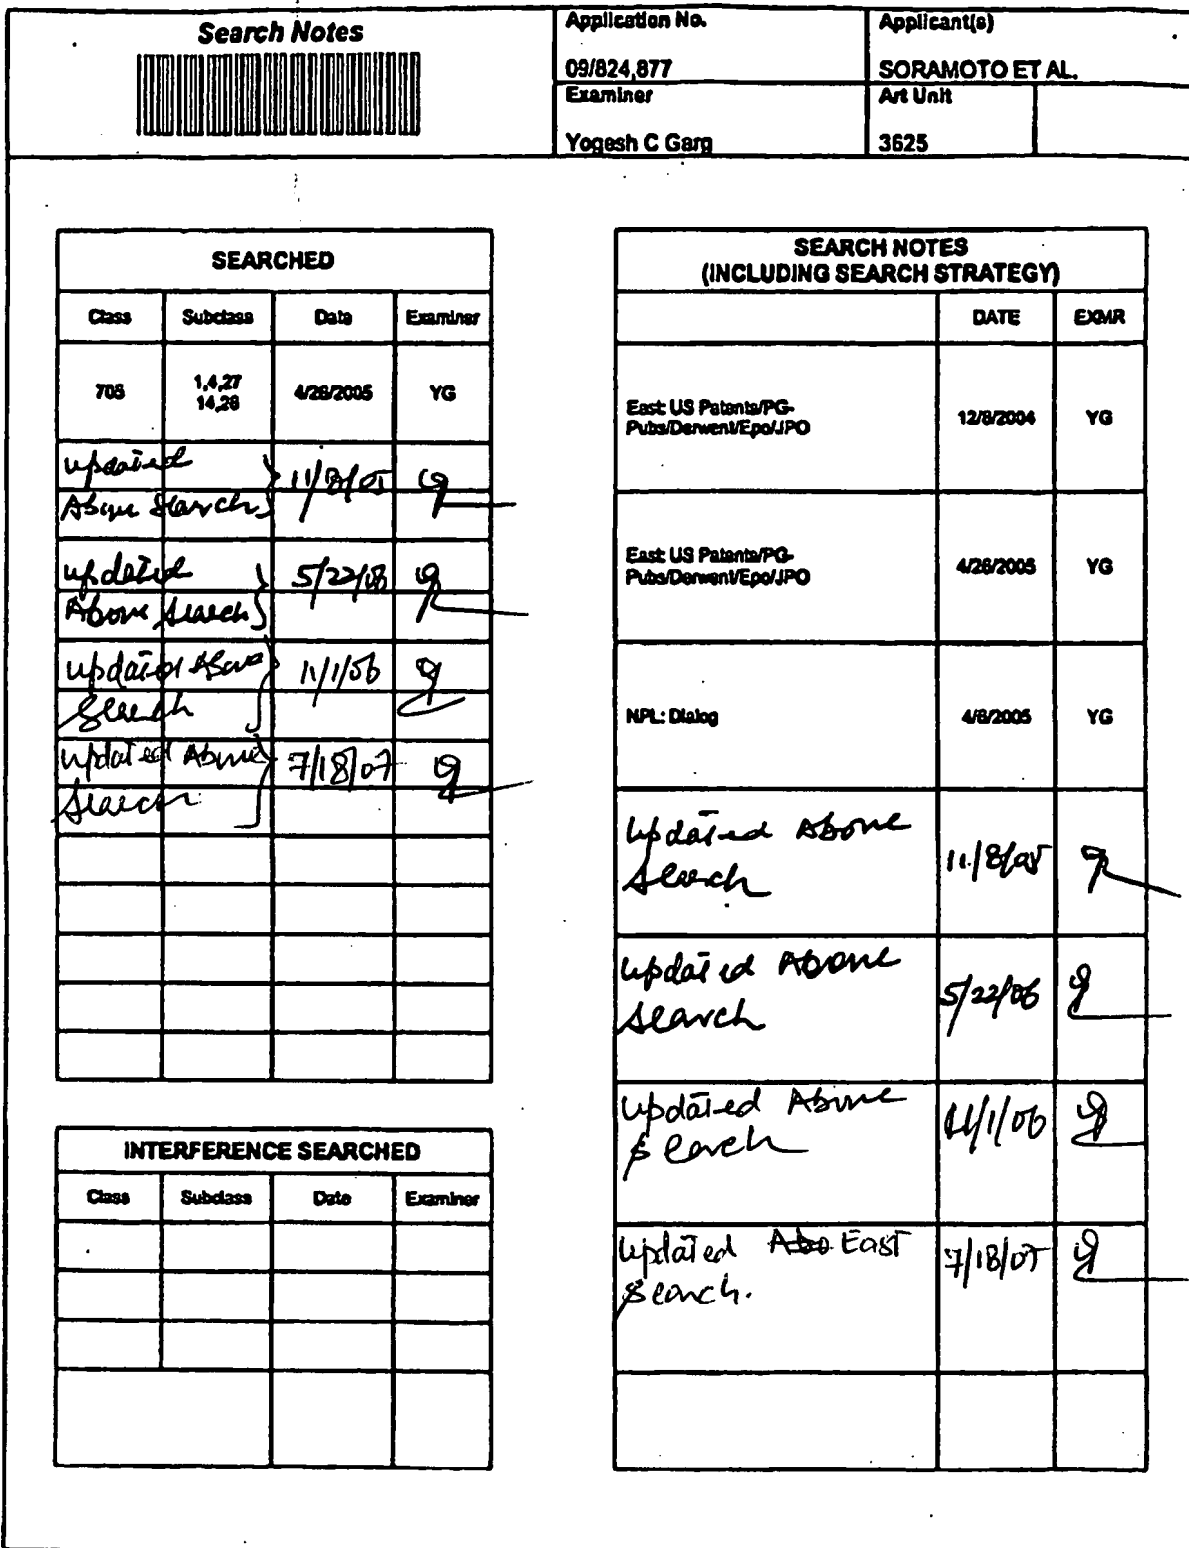 Search Notes
Application No.
Applicant(s)
09/824,877
SORAMOTO ET AL.
Examiner
Art Unit
Yogesh C Garg
3625
SEARCHED
Class Subclass Date Examiner
705 1,4,27 4/26/2005 YG
14,28
updated 11/8/05
Above Search
updated 5/22/06
Above Search
updated Above 11/1/06
Search
updated Above 7/18/07
Search
INTERFERENCE SEARCHED
Class Subclass Date Examiner
SEARCH NOTES
(INCLUDING SEARCH STRATEGY)
DATE EXMR
East: US Patents/PG-
Pubs/Derwent/Epo/JPO 12/8/2004 YG
East: US Patents/PG-
Pubs/Derwent/Epo/JPO 4/26/2005 YG
NPL: Dialog 4/8/2005 YG
Updated Above
Search 11/8/05
Updated Above
Search 5/22/06
Updated Above
Search 11/1/06
Updated East
Search. 7/18/07